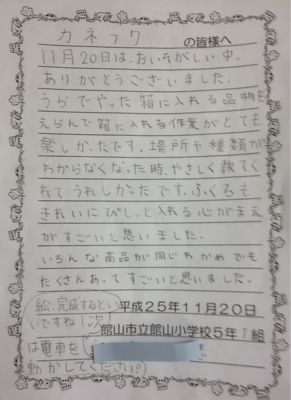 カネフク の皆様へ
11月20日は、おいそがしい中、
ありがとうございました。
うらでやった箱に入れる品物を
えらんで箱に入れる作業がとても
楽しかったです。場所や種類が
わからなくなった時、やさしく教えてく
れてうれしかったです。ふくろも
きれいにぴしっと入れる心がまえ
がすごいと思いました。
いろんな商品が同じわかめでも
たくさんあってすごいと思いました。
絵、完成するとい
いですね!次
は電車を(
動かしてください?)
平成25年11月20日
館山市立館山小学校5年1組